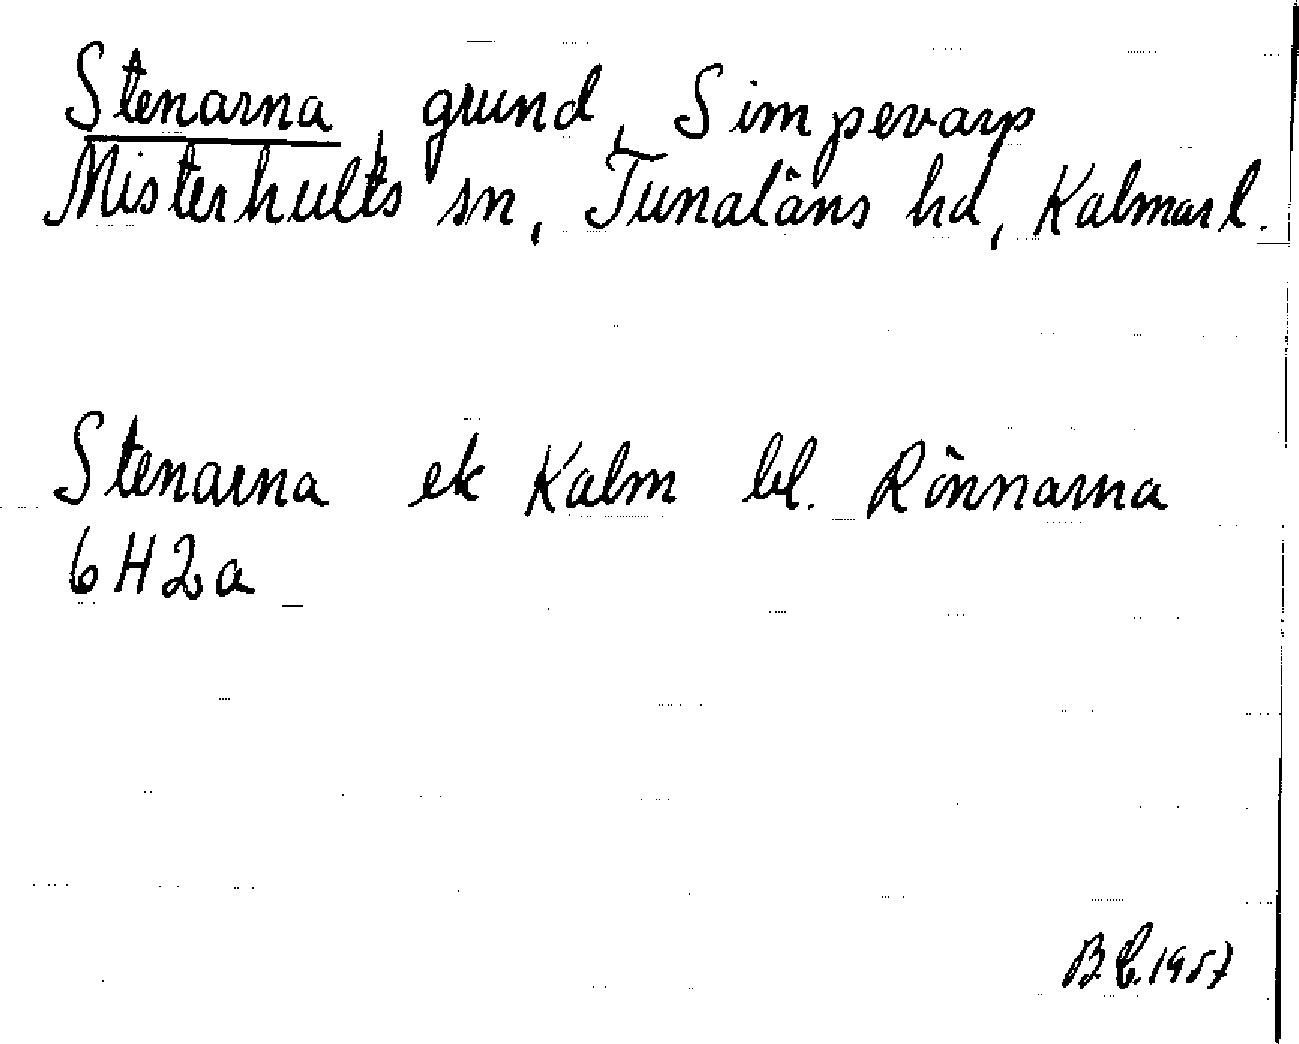 Stenarna, grund, Simpevarp
Misterhults sn, Tunaläns hd, Kalmar l.
Stenarna ek Kalm bl. Rönnarna
6H2a
B.C. 1957